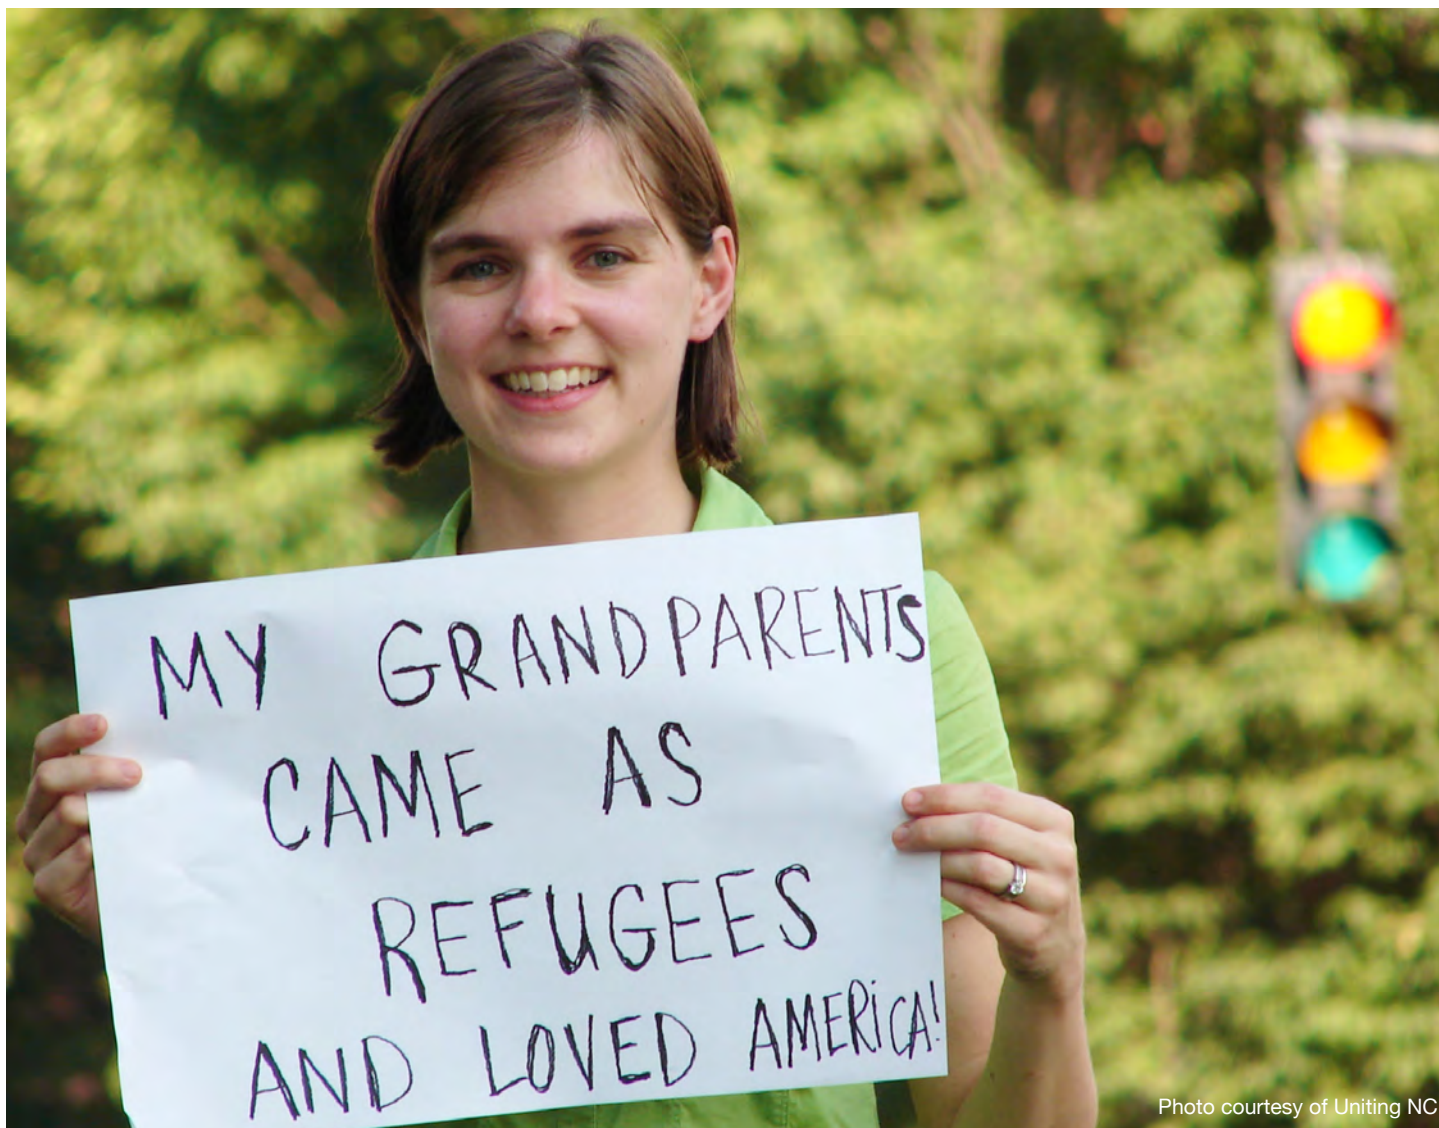 MY GRANDPARENTS
CAME AS
REFUGEES
AND LOVED AMERiCA!
Photo courtesy of Uniting NC